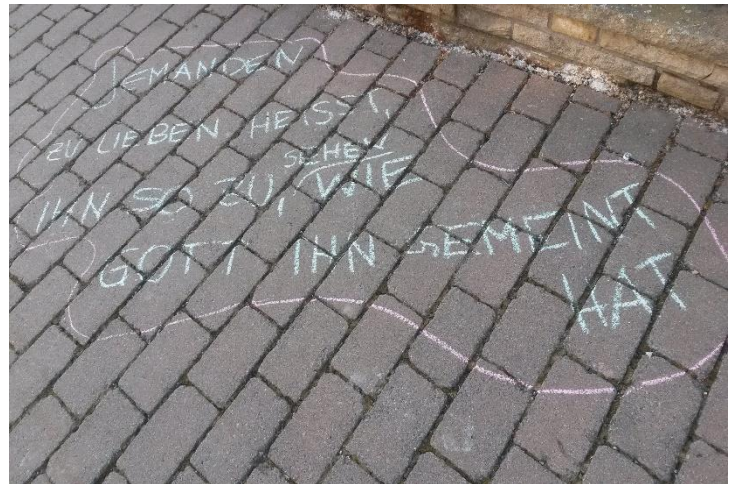 JEMANDEN
ZU LIEBEN HEISST,
SEHEN
IHN SO ZU, WIE
GOTT IHN GEMEINT
HAT